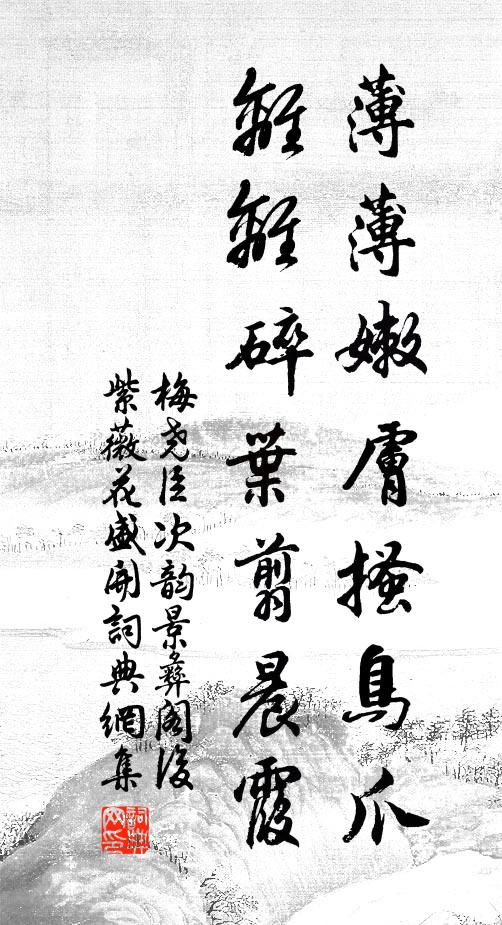 薄薄嫩膚搔鳥爪
離離碎葉翦晨霞
梅堯臣次韵景彝閣後
紫薇花盛開詞典網集